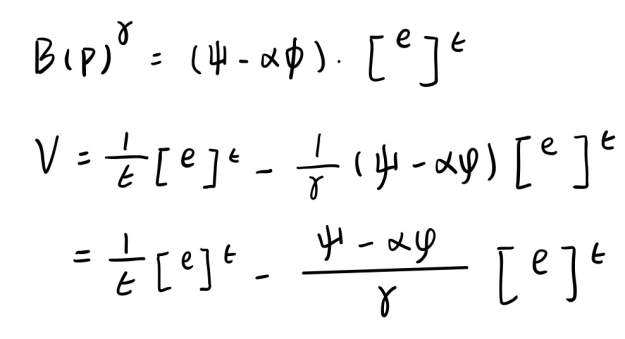 B(p)^γ = (ψ - αϕ) · [e]^t
V = 1/t [e]^t - 1/γ (ψ - αφ) [e]^t
= 1/t [e]^t - (ψ - αφ)/γ [e]^t